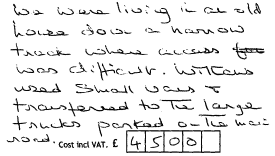 We were living in an old
house down a narrow
track where access
was difficult. Wiltons
used small vans &
transferred to the large
trucks parked on the main
road. Cost incl VAT. £ 4500